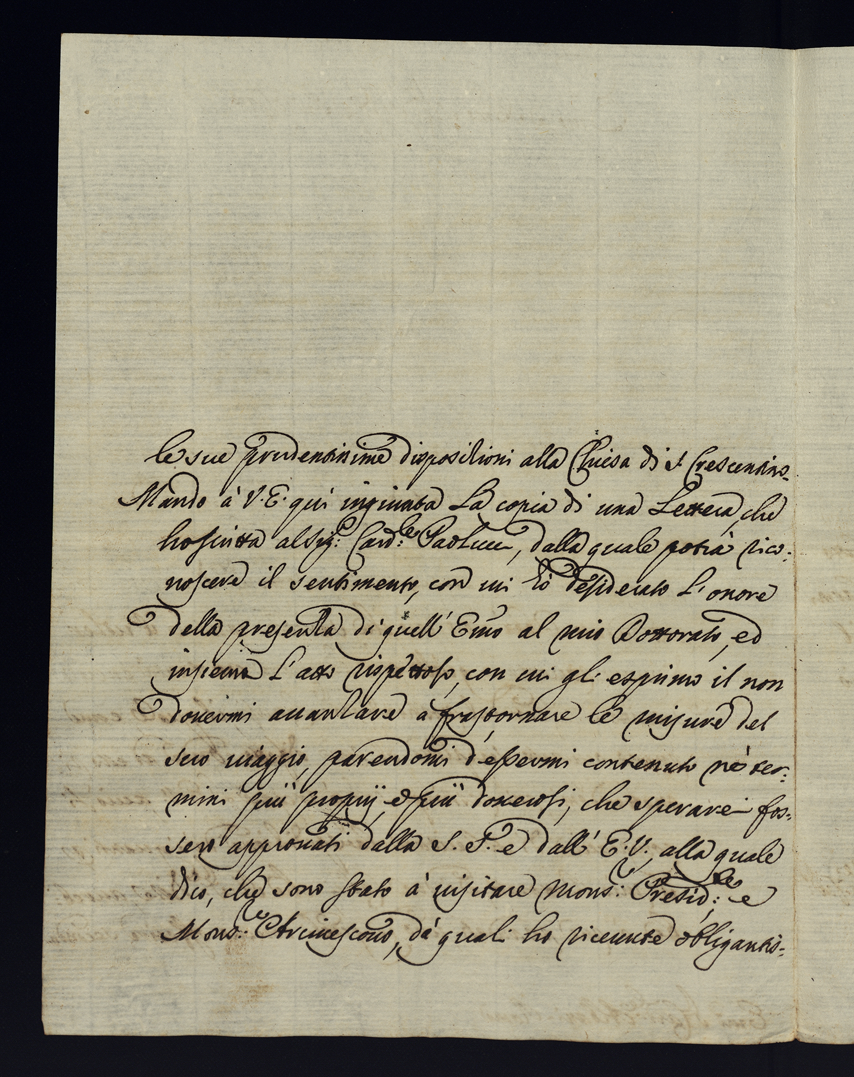 le sue prudentissime disposizioni alla Chiesa di S. Crescentino.
Mando à V. E. qui ingiunta La copia di una Lettera, che
ho scritta al Sig.e Card.le Paolucci, dalla quale potrà rico-
noscere il sentimento, con cui hò desiderato L'onore
della presenza di quell' Em̃o al mio Dottorato, ed
insieme L'atto rispettoso, con cui gli esprimo il non
dovermi avanzare à frastornare le misure del
suo viaggio, parendomi d'essermi contenuto ne' ter-
mini più proprij, e più doverosi, che sperarei fos-
sero approvati dalla S. S. e dall' E. V., alla quale
dico, che sono stato à visitare Mons.r Presid.le e
Mons.r Arcivescovo, da' quali ho ricevute obligantis-